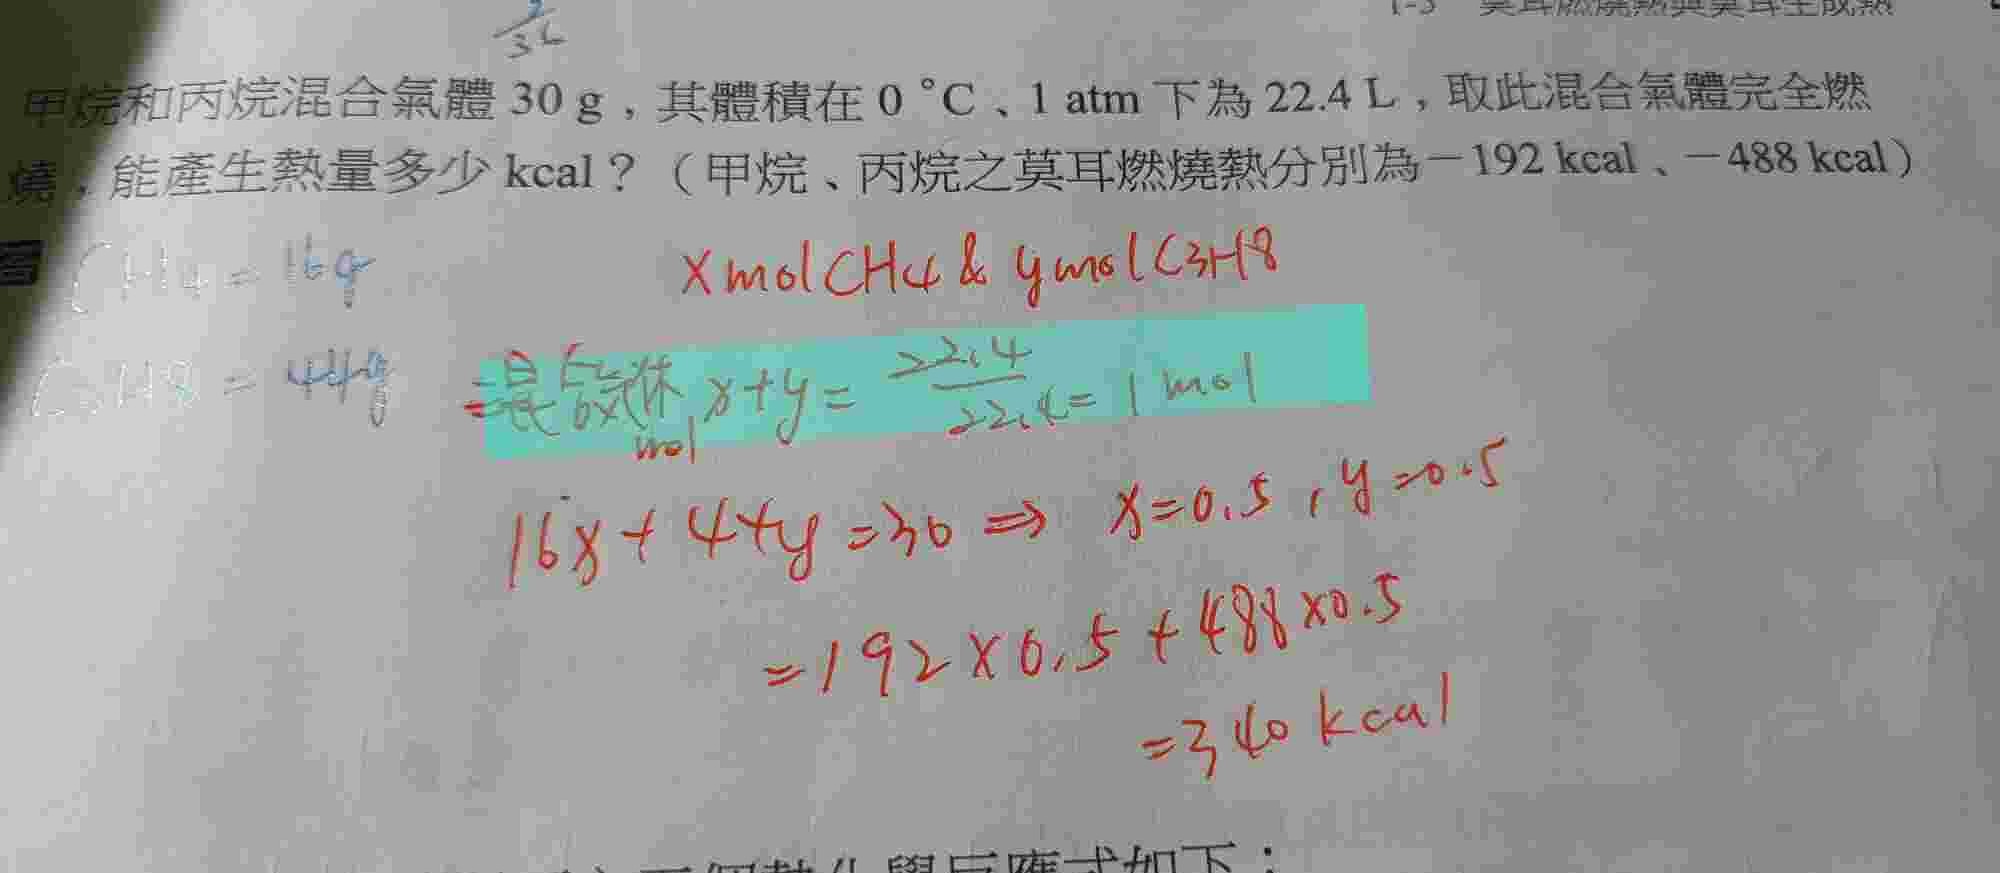 1-3 莫耳燃燒熱與莫耳生成熱
3L
甲烷和丙烷混合氣體 30 g，其體積在 0 °C、1 atm 下為 22.4 L，取此混合氣體完全燃
燒，能產生熱量多少 kcal？（甲烷、丙烷之莫耳燃燒熱分別為－192 kcal、－488 kcal）
答 CH4 = 16g
x mol CH4 & y mol C3H8
C3H8 = 44g
氣体 mol x+y = 22.4/22.4 = 1 mol
16x + 44y = 30 ⇒ x=0.5, y=0.5
=192×0.5+488×0.5
=340 kcal
熱化學反應式如下：